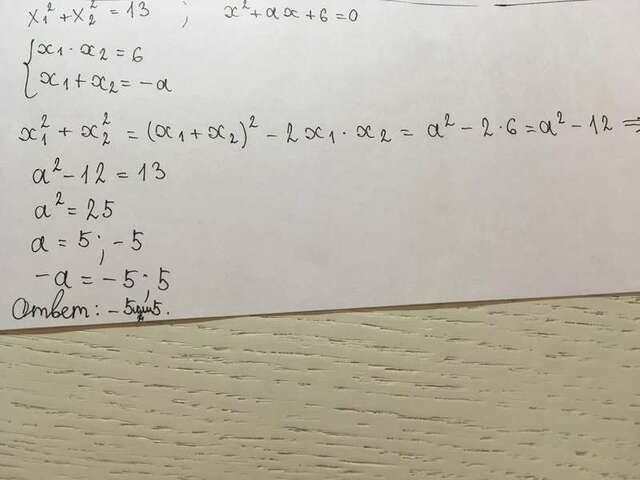 x₁² + x₂² = 13 ; x² + ax + 6 = 0
{ x₁ · x₂ = 6
x₁ + x₂ = -a
x₁² + x₂² = (x₁ + x₂)² - 2x₁ · x₂ = a² - 2 · 6 = a² - 12 ⇒
a² - 12 = 13
a² = 25
a = 5 ; -5
-a = -5 ; 5
Ответ: -5 или 5.